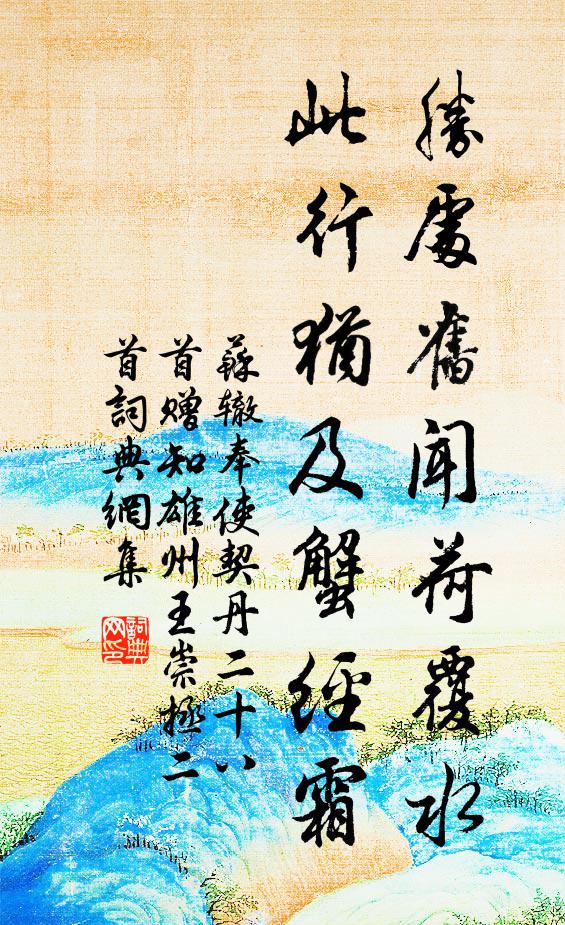 勝處舊聞荷覆水
此行猶及蟹經霜
蘇辙奉使契丹二十八
首赠知雄州王崇拯二
首詞典網集
詞典網印